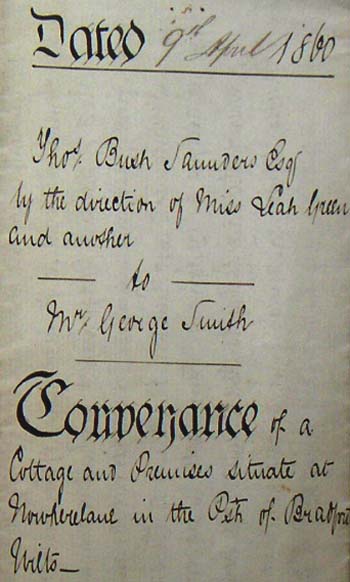 Dated 9th April 1860
Thos. Bush Saunders Esq
by the direction of Miss Leah Green
and another
to
Mr. George Smith
Conveyance of a
Cottage and Premises situate at
Nowherelane in the Psh of Bradford
Wilts